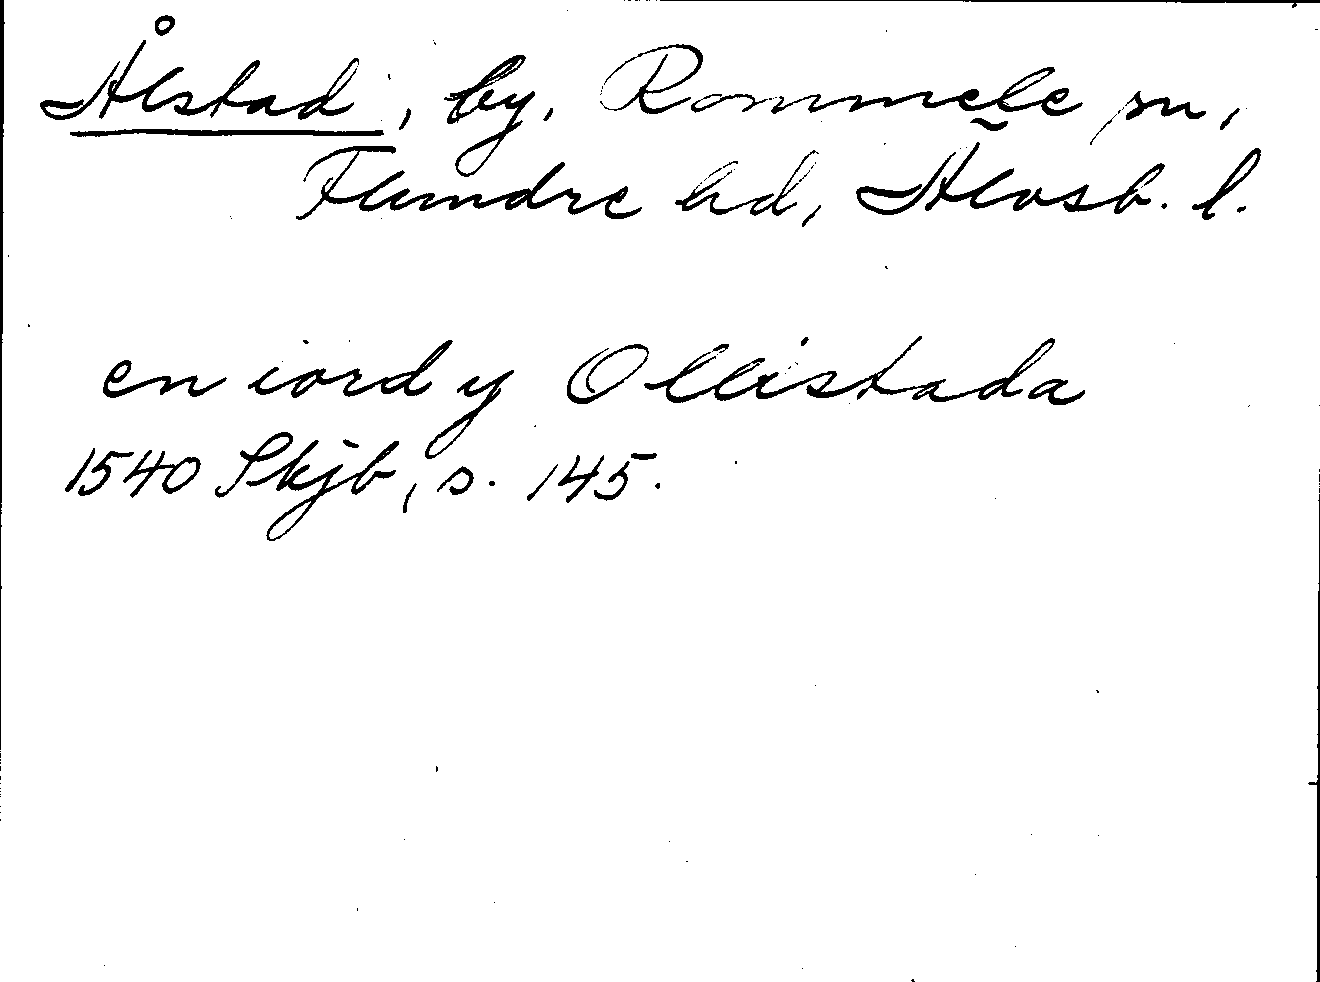 Ålstad, by, Rommele sn,
Flundre hd, Älvsb. l.
en iord y Ollistada
1540 Skjb, s. 145.